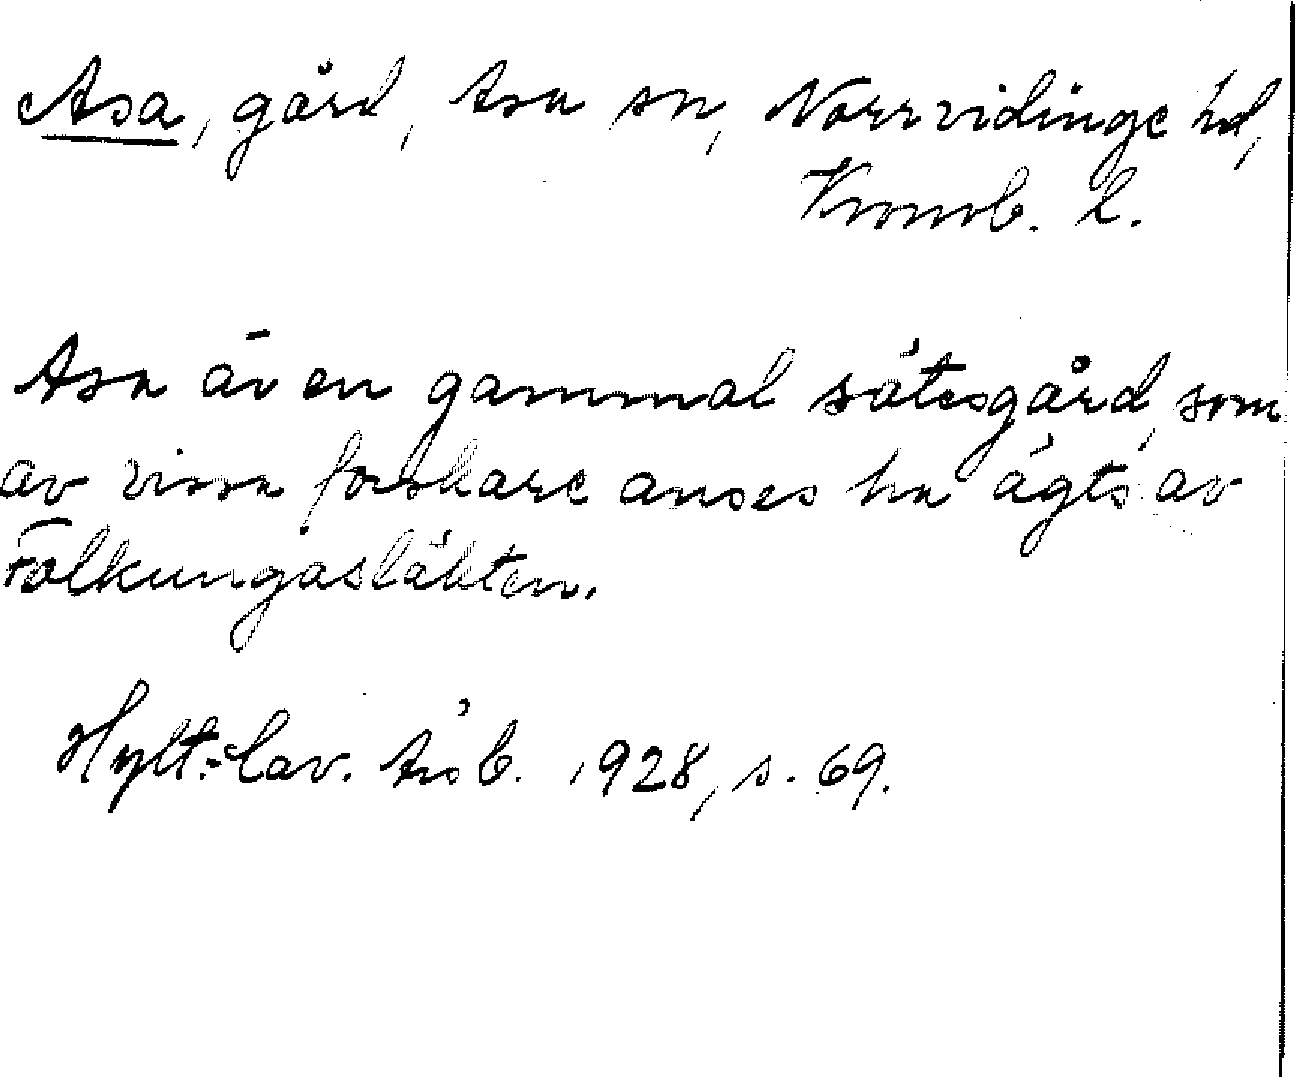 Asa, gård, Asa sn, Norrvidinge hd,
Kronob. l.
Asa är en gammal sätesgård, som
av vissa forskare anses ha ägts av
Folkungasläkten.
Hylt.-Cav. årsb. 1928, s. 69.